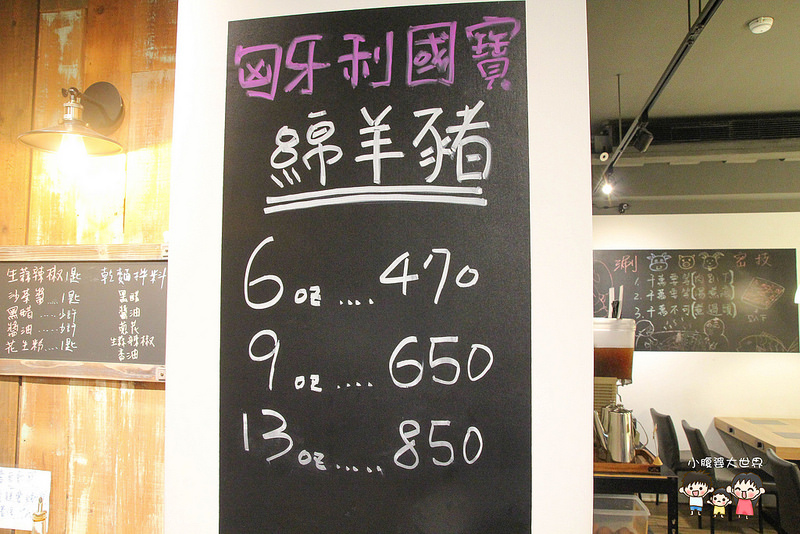 匈牙利國寶
綿羊豬
6 oz .... 470
9 oz .... 650
13 oz ..... 850
生蒜辣椒1匙
沙茶醬....1匙
黑醋.....少許
醬油.....少許
花生粉...1匙
乾麵拌料
黑醋
醬油
蔥花
生蒜辣椒
香油
涮
密技
1.千萬要
2.千萬要
3.千萬不可
小腹婆大世界